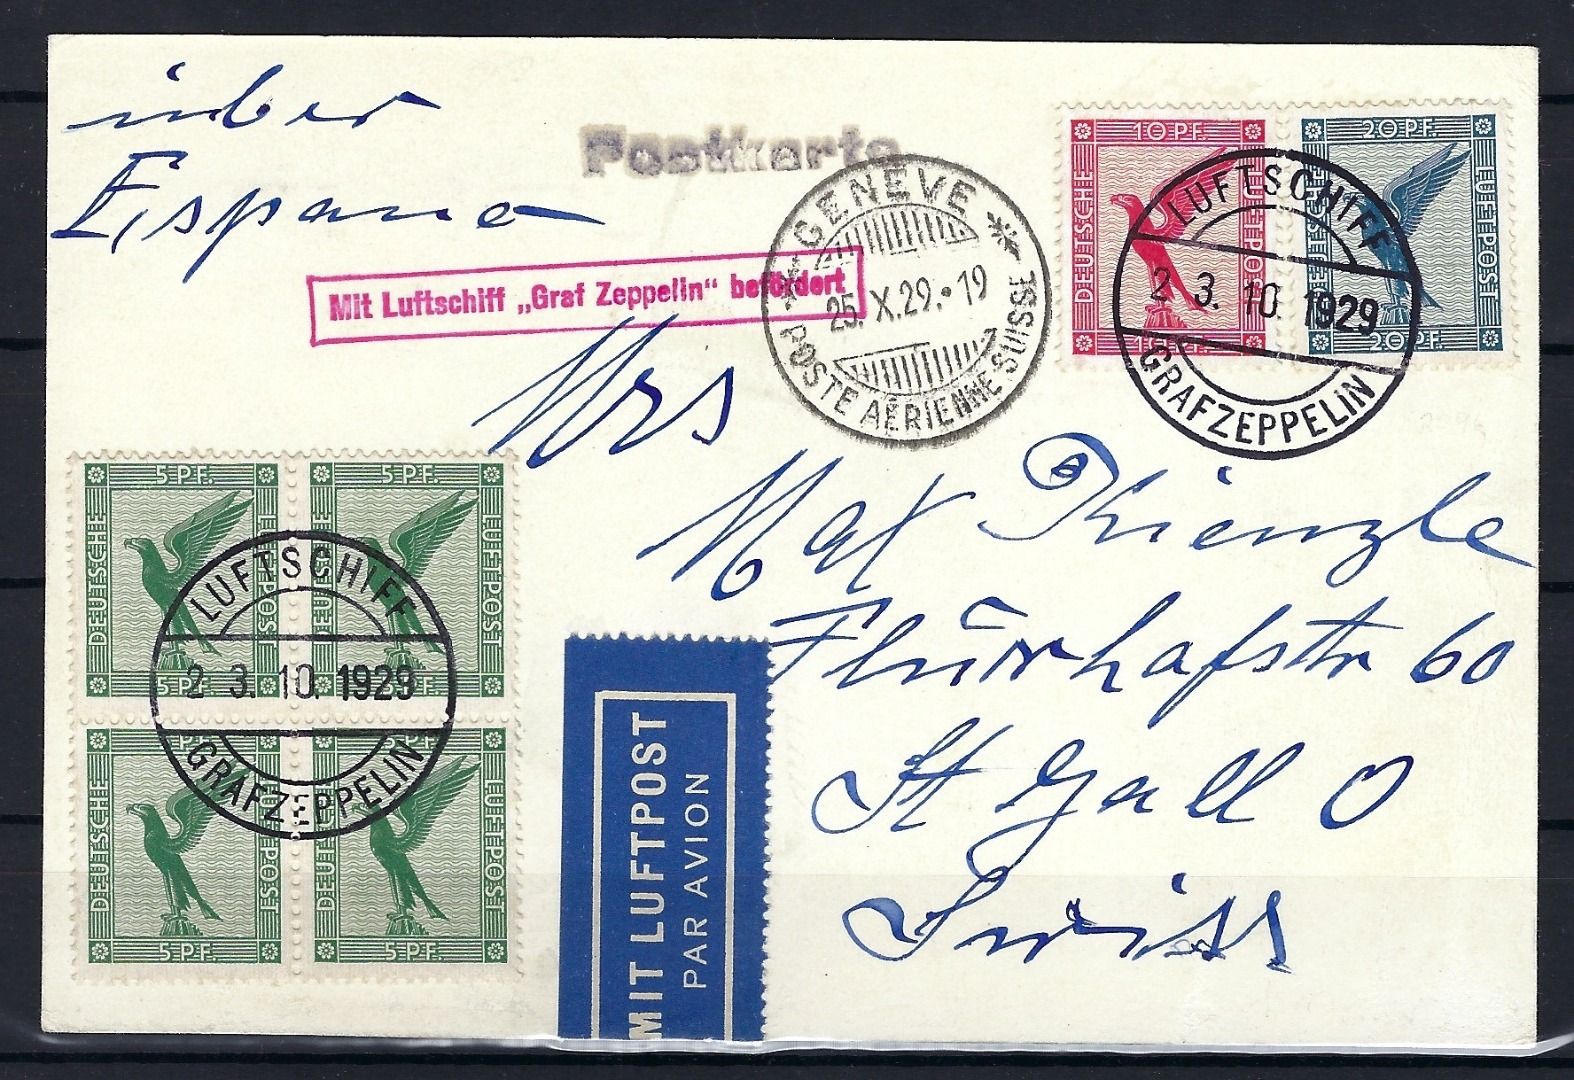 über
Espana
Postkarte
Mit Luftschiff „Graf Zeppelin“ befördert
GENÈVE
25. X. 29. • 19
POSTE AÉRIENNE SUISSE
10 PF.
DEUTSCHE
LUFTPOST
10 PF.
20 PF.
DEUTSCHE
LUFTPOST
20 PF.
LUFTSCHIFF
2 3. 10. 1929
GRAF ZEPPELIN
Mrs
Max Kienzle
Flurhofstr 60
St Gall O
Swiss
5 PF.
DEUTSCHE
LUFTPOST
5 PF.
5 PF.
DEUTSCHE
LUFTPOST
5 PF.
LUFTSCHIFF
2 3. 10. 1929
GRAF ZEPPELIN
5 PF.
DEUTSCHE
LUFTPOST
5 PF.
5 PF.
DEUTSCHE
LUFTPOST
5 PF.
MIT LUFTPOST
PAR AVION